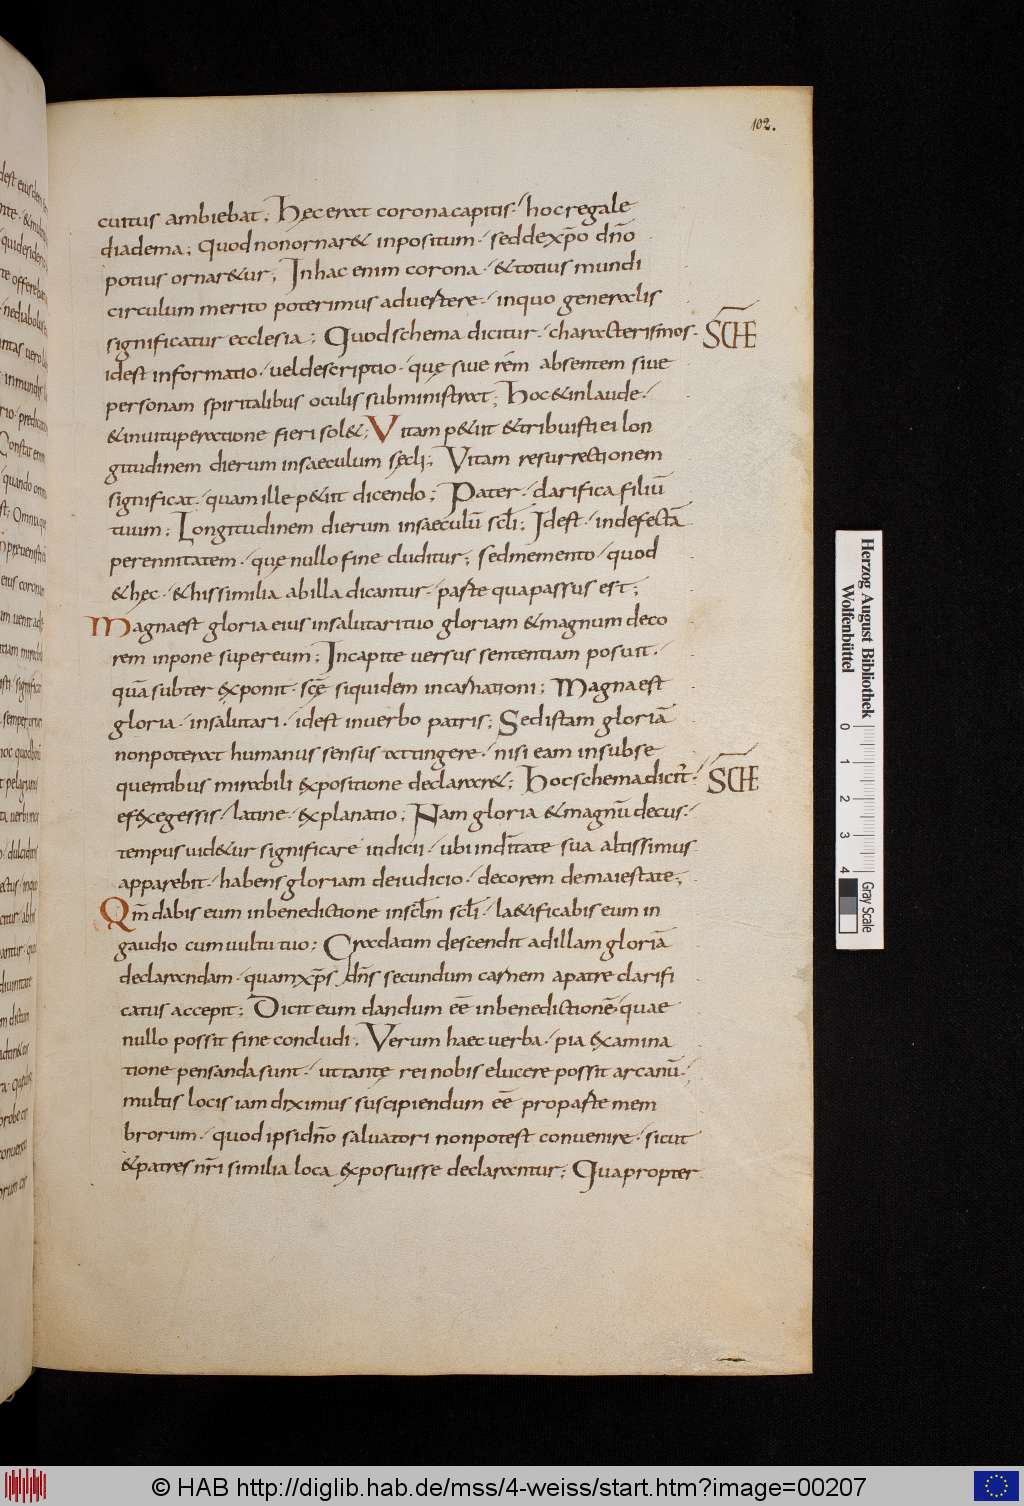 102.
cuitus ambiebat; Hęc erat corona capitis· hoc regale
diadema; quod non ornar& inpositum· sed de xp̄o dn̄o
potius ornar&ur; In hac enim corona· & totius mundi
circulum merito poterimus aduertere· inquo generalis
significatur ecclesia; Quod schema dicitur· characterismos·
SCHE
idest informatio· uel descriptio· quę siue rēm absentem siue
personam spiritalibus oculis subministrat; Hoc & in laude·
& inuituperatione fieri sol&; Vitam p&iit & tribuisti ei lon
gitudinem dierum insaeculum sęcli; Vitam resurrectionem
significat· quam ille p&iit dicendo; Pater· clarifica filiū
tuum; Longitudinem dierum insaeculū sc̄li; Idest· indefectā
perennitatem· quę nullo fine cluditur; sed memento· quod
& hęc· & his similia ab illa dicantur· parte qua passus est;
Magna est gloria eius insalutari tuo gloriam & magnum deco
rem inpone super eum; In capite uersus sententiam posuit·
quā subter exponit· scę siquidem incarnationi; Magna est
gloria· insalutari· idest inuerbo patris; Sed istam gloriā
non poterat humanus sensus attingere· nisi eam insubse
quentibus mirabili expositione declarar&; Hoc schema dicit̄·
SCHE
efexegessis· latine· explanatio; Nam gloria & magnū decus·
tempus uid&ur significare iudicii· ubi indiūtate sua altissimus
apparebit· habens gloriam deiudicio· decorem demaiestate;
Qm̄ dabis eum inbenedictione insc̄lm sc̄li· la&ificabis eum in
gaudio cum uultu tuo; Cradatim descendit ad illam gloriā
declarandam· quam xp̄s dn̄s secundum carnem a patre clarifi
catus accepit; Dicit eum dandum eē inbenedictionē· quae
nullo possit fine concludi; Verum haec uerba· pia examina
tione pensanda sunt· ut tantę rei nobis elucere possit arcanū·;
multis locis iam diximus suscipiendum eē pro parte mem
brorum· quod ipsi dn̄o saluatori non potest conuenire· sicut
& patres nr̄i similia loca exposuisse declarantur; Quapropter
Herzog August Bibliothek
Wolfenbüttel
0 1 2 3 4
Gray Scale
© HAB http://diglib.hab.de/mss/4-weiss/start.htm?image=00207